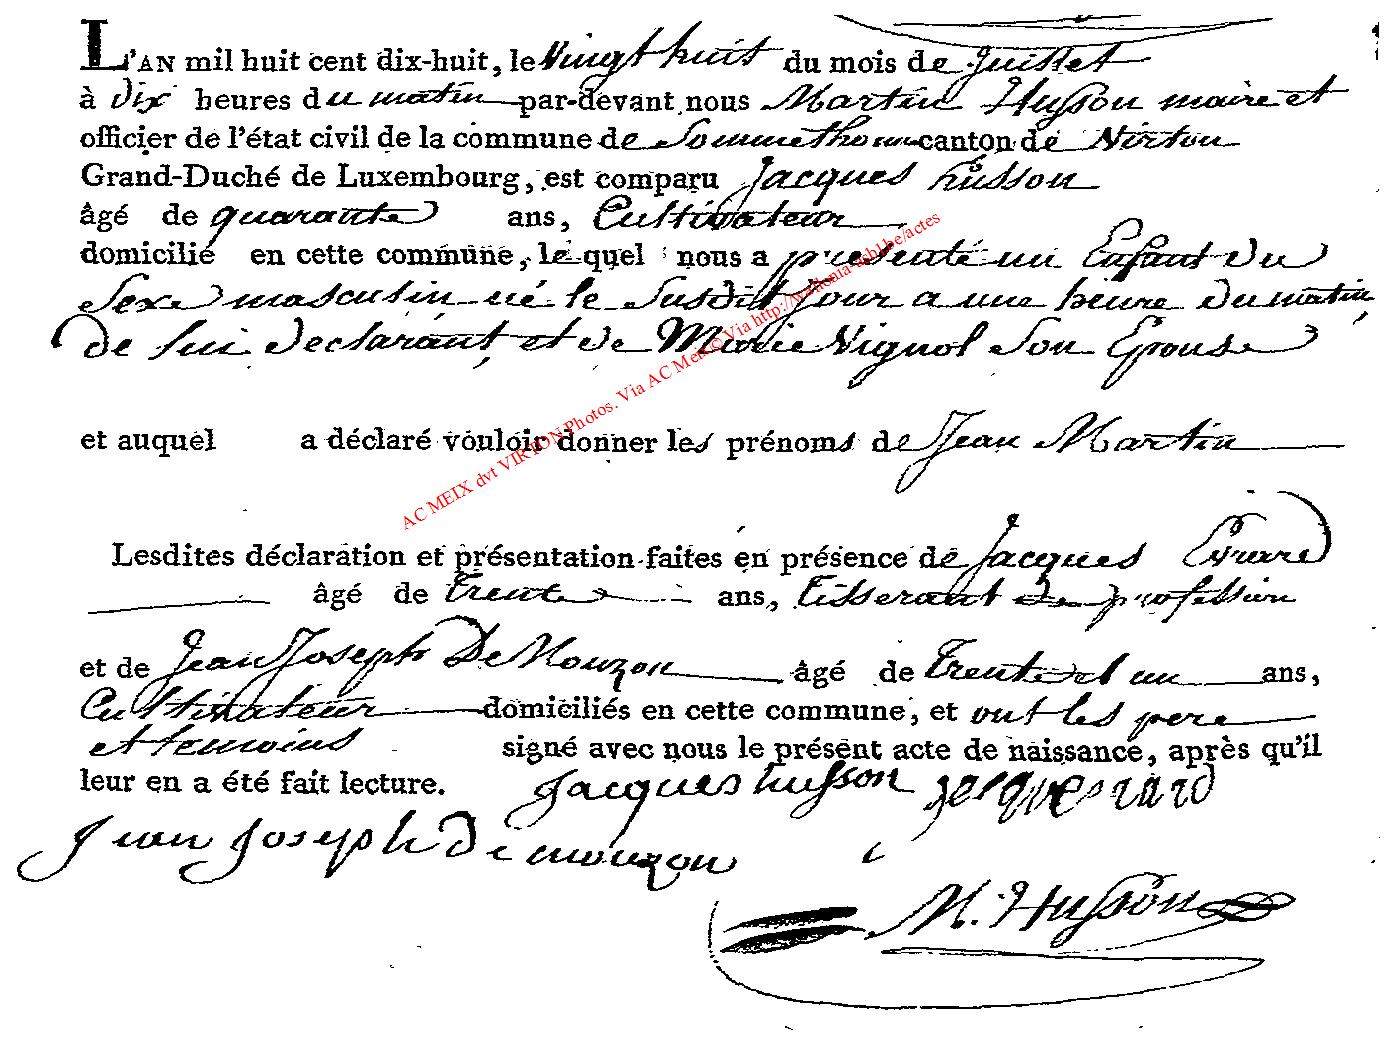 L'AN mil huit cent dix-huit, le Vingt huit du mois de Juillet
à dix heures du matin par-devant nous Martin Husson maire et
officier de l'état civil de la commune de Sommethonne canton de Virton
Grand-Duché de Luxembourg, est comparu Jacques husson
âgé de quarante ans, Cultivateur
domicilié en cette commune, le quel nous a présenté un Enfant du
Sexe masculin né le Susdit jour a une heure du matin,
de lui declarant, et de Marie Vignol Son Epouse
et auquel a déclaré vouloir donner les prénoms de Jean Martin
Lesdites déclaration et présentation faites en présence de Jacques Evrard
âgé de trente ans, tisserant de profession
et de Jean Joseph De Mouzon âgé de trente et un ans,
Cultivateur domiciliés en cette commune, et ont les pere
et temoins signé avec nous le présent acte de naissance, après qu'il
leur en a été fait lecture. Jacques husson
Jean Joseph De mouzon
M. Husson
AC MEIX dvt VIRTON Photos. Via AC Meix© Via http://wallonia-asbl.be/actes